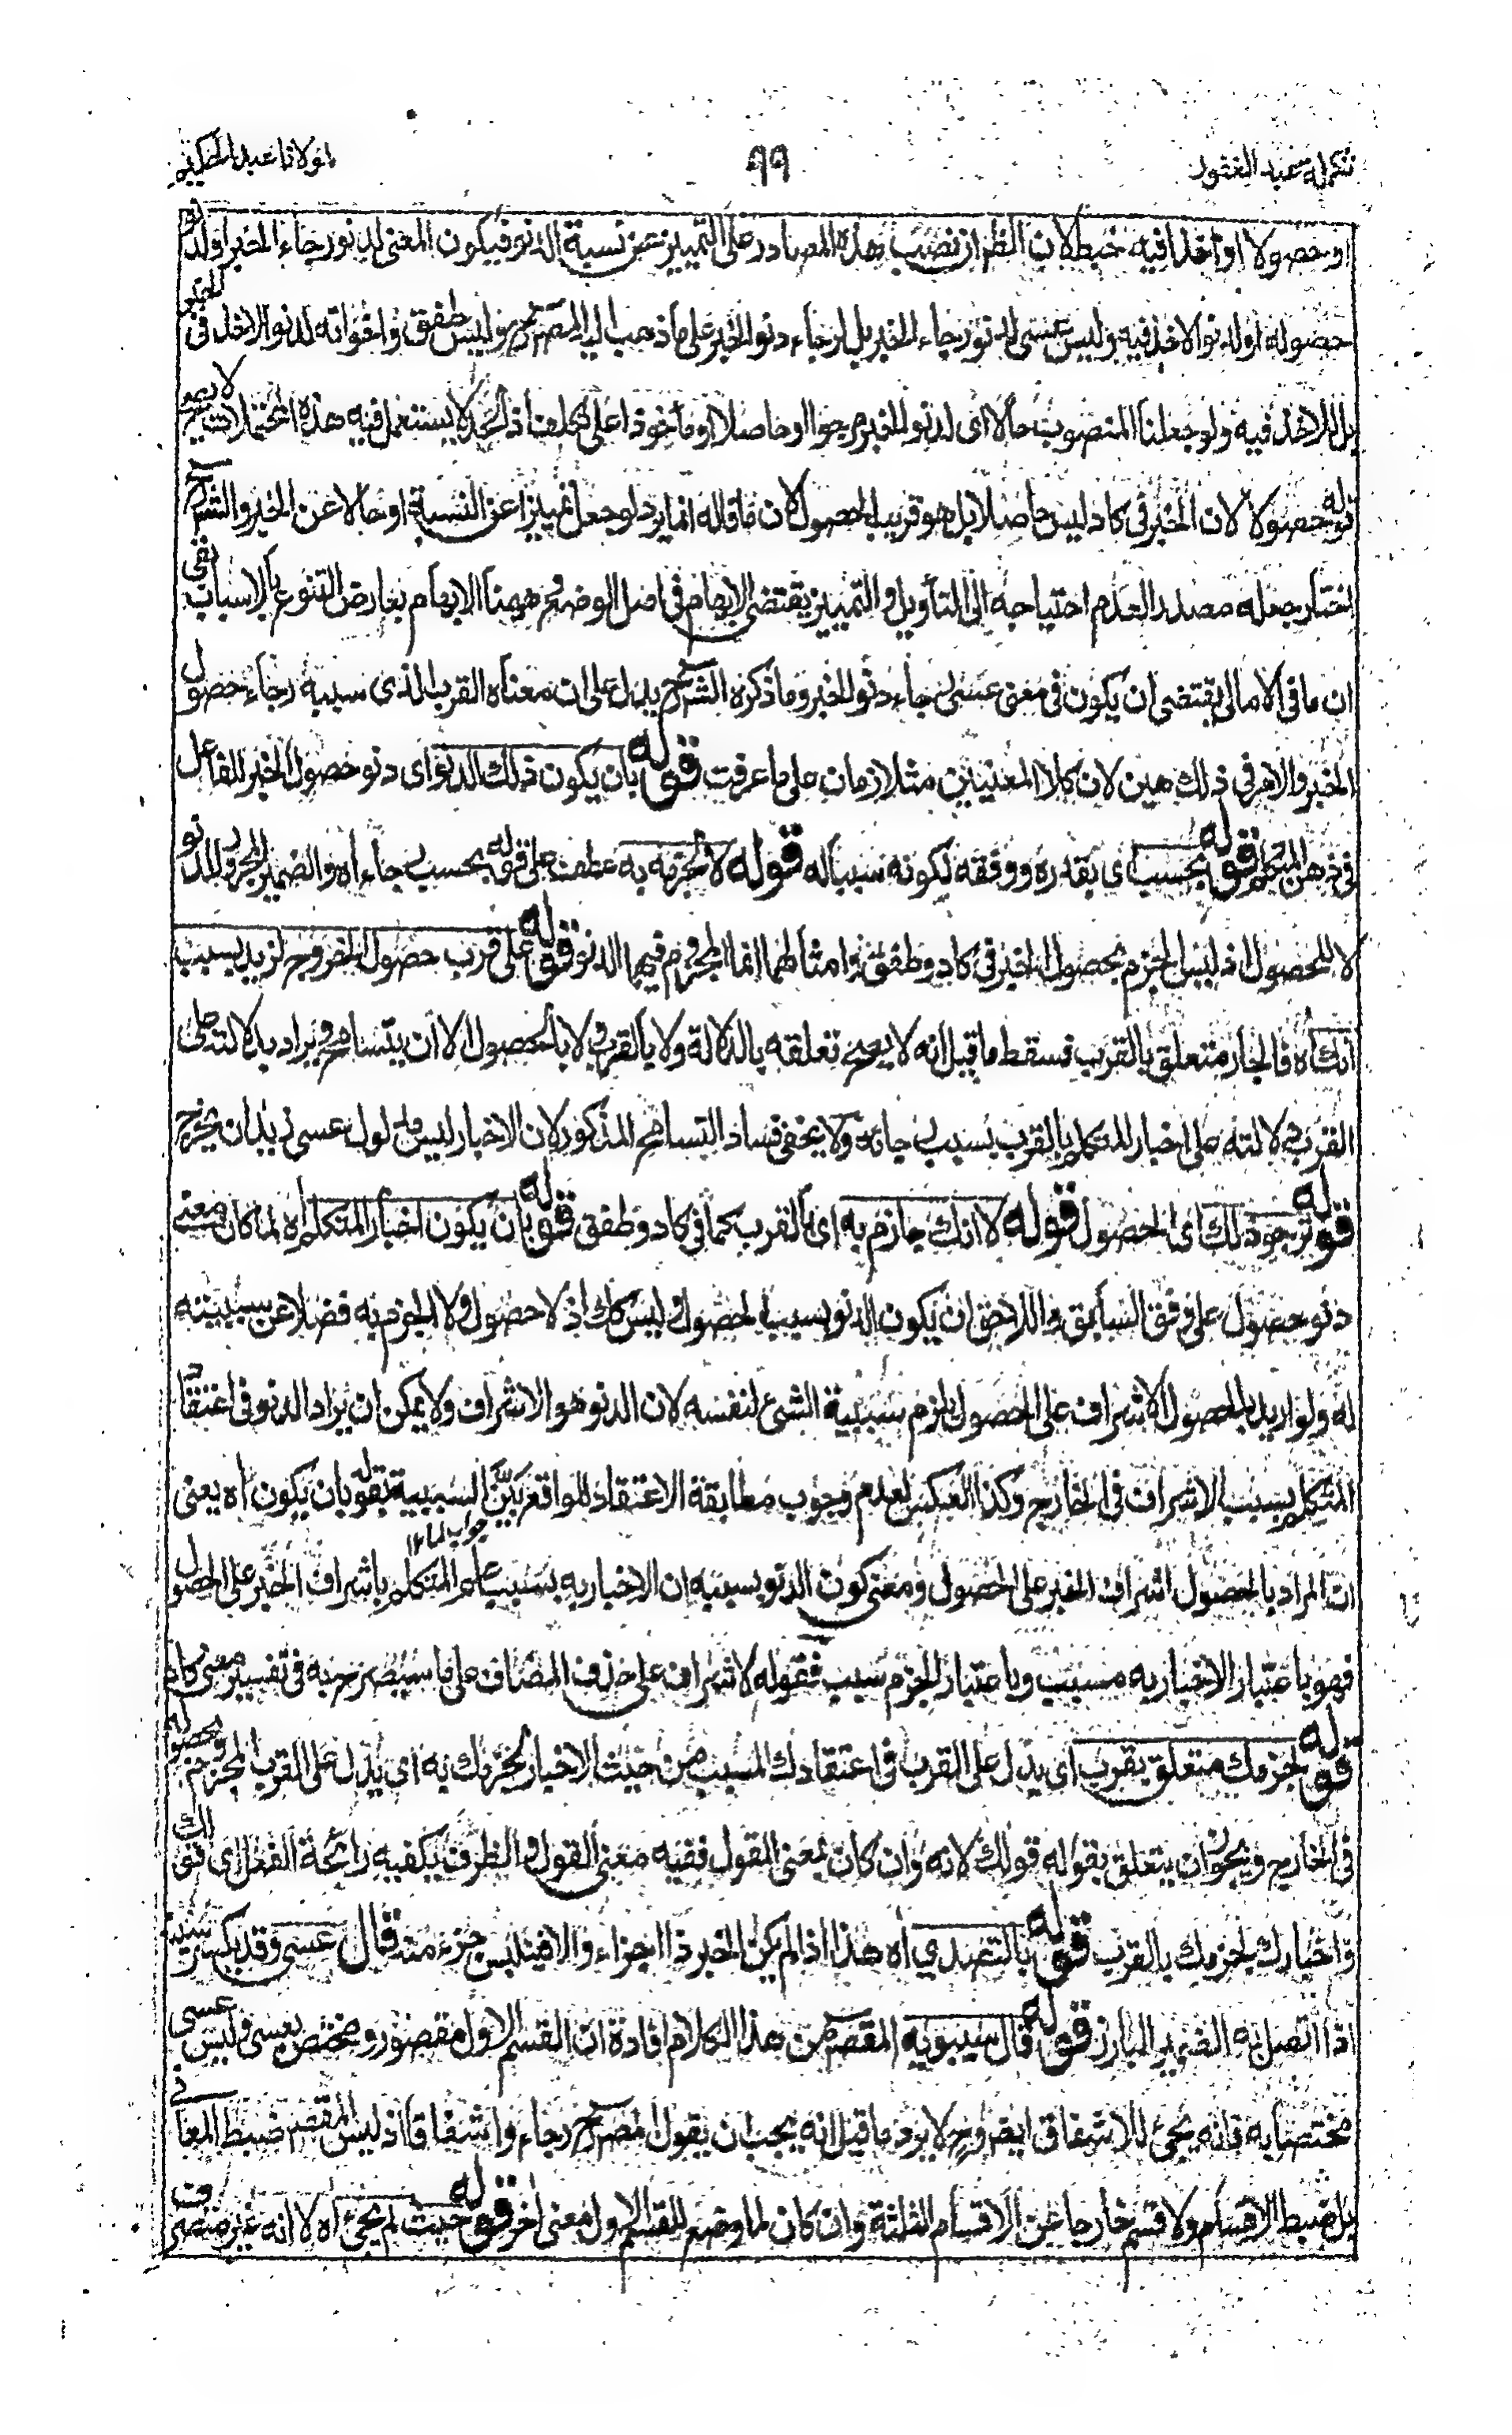 تكمله عبد الغفور
٩٩
مولانا عبد الحكيم
او حصولا او اخذا فيه خبط لان الظاهر ان نصب هذه المصادر على التمييز عن نسبة الدنو فيكون المعنى لدنو رجاء الخبر او لدنو
حصوله او لدنو الاخذ فيه وليس عسى لدنو رجاء الخبر بل لرجاء دنو الخبر على ما ذهب اليه المصرح وليس طفق واخواته لدنو الاخذ فى الخبر
بل للاخذ فيه ولو جعلنا المنصوب حالا اى لدنو الخبر مرجوا او حاصلا او مأخوذا على تكلف اذ لا يستعمل فيه هذه لا يصح
قوله حصولا لان الخبر فى كاد ليس حاصلا بل هو قريب الحصول لان ما قاله انما يرد لو جعل تمييزا عن النسبة او حالا عن الخبر والشرح
اختار جعله مصدرا لعدم احتياجه الى التأويل والتمييز يقتضى الابهام فى اصل الوضع وههنا الابهام بعارض التنوع بالاسباب بقى
ان ما فى الامالى يقتضى ان يكون فى معنى عسى رجاء دنو الخبر وما ذكره الشرح يدل على ان معناه القرب الذى سببه رجاء حصول
الخبر والامر فى ذلك هين لان كلا المعنيين متلازمان على ما عرفت قوله بان يكون ذلك الدنو اى دنو حصول الخبر للفاعل
فى ذهن المتكلم قوله بحسب اى بقدره ووفقه لكونه سببا له قوله لا الجزم به عطف على قوله بحسب رجاء اه والضمير المجرور للدنو
لا للحصول اذ ليس الجزم بحصول الخبر فى كاد وطفق وامثالهما انما المجزوم فيهما الدنو قوله على قرب حصول الخروج لزيد بسبب
انك اه فالجار متعلق بالقرب فسقط ما قيل انه لا يصح تعلقه بالدلالة ولا بالقرب ولا بالحصول الا ان يتسامح ويراد بدلالته على
القرب دلالته على اخبار المتكلم بالقرب بسبب رجائه ولا يخفى فساد التسامح المذكور لان الاخبار ليس مدلول عسى زيد ان يخرج
قوله ترجو ذلك اى الحصول قوله لا انك جازم به اى بالقرب كما فى كاد وطفق قوله بان يكون اخبار المتكلم اه لما كان معنى
دنو حصول على وفق السابق واللاحق ان يكون الدنو بسبب الحصول وليس كك اذ لا حصول ولا الجزم به فضلا عن سببيته
له ولو اريد بالحصول الاشراف على الحصول يلزم سببية الشئ لنفسه لان الدنو هو الاشراف ولا يمكن ان يراد الدنو فى اعتقاد
المتكلم بسبب الاشراف فى الخارج وكذا العكس لعدم وجوب مطابقة الاعتقاد للواقع بين السببية بقوله بان يكون اه يعنى
جواب لما ١٢
ان المراد بالحصول اشراف الخبر على الحصول ومعنى كون الدنو بسببه ان الاخبار به بسبب علم المتكلم باشراف الخبر على الحصول
فهو باعتبار الاخبار به مسبب وباعتبار الجزم سبب فقوله لاشراف على حذف المضاف على ما سيصرح به فى تفسير معنى كاد
قوله لجزمك متعلق بقرب اى يدل على القرب فى اعتقادك المسبب من حيث الاخبار لجزمك به اى يدل على القرب المجزوم بحصوله
فى الخارج ويجوز ان يتعلق بقوله قولك لانه وان كان بمعنى المقول ففيه معنى القول والظرف يكفيه رائحة الفعل اى قولك
واخبارك لجزمك بالقرب قوله بالتصدي اه هذا اذا لم يكن الخبر ذا اجزاء والا فيلبس جزء منه قال عسى وقد يكسر سينه
اذا اتصل به الضمير البارز قوله قال سيبويه المقصود من هذا الكلام افادة ان القسم الاول مقصور ومختص بعسى وليس عسى
مختصا به فانه يجئ للاشفاق ايضا وح لا يرد ما قيل انه يجب ان يقول المصرح رجاء واشفاقا اذ ليس المقصود ضبط المعانى
بل ضبط الاقسام ولا قسم خارجا عن الاقسام الثلثة وان كان لما وضع للقسم الاول معنى اخر قوله حيث لم يجئ اه لا انه غير متصرف